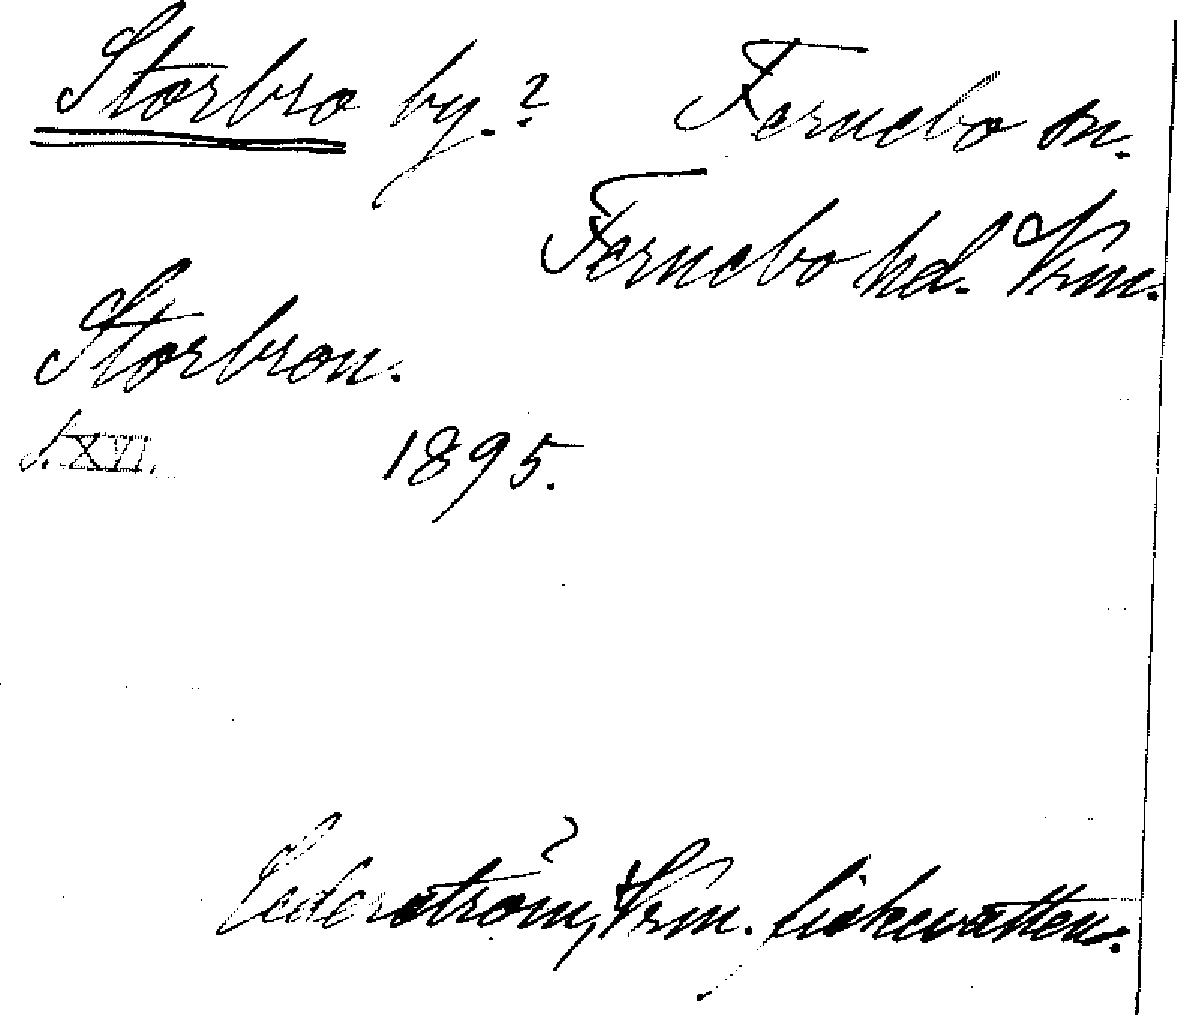 Storbro by.? Fernebo sn.
Fernebo hd. Vrm.
Storbron.
S. XVI. 1895.
Cederström, Vrm. fiskevatten.